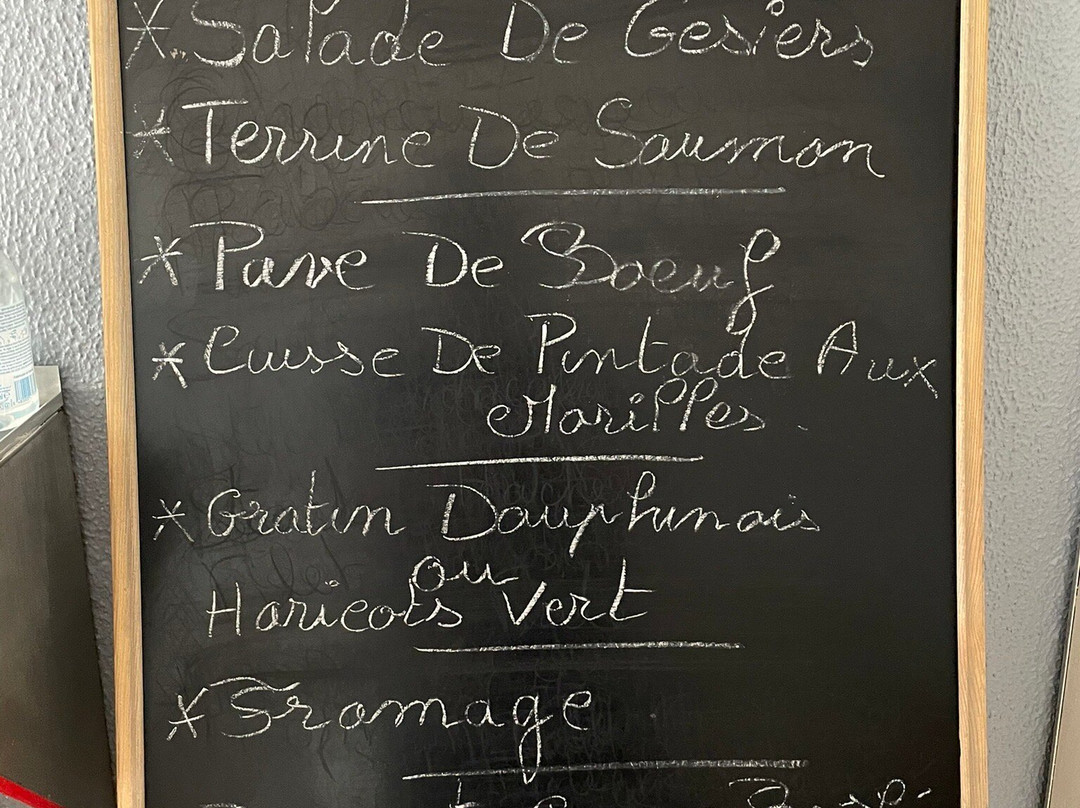 * Salade De Gesiers
* Terrine De Saumon
* Pave De Boeuf
* Cuisse De Pintade Aux
Marilles.
* Gratin Dauphinois
ou
Haricots Vert
* Fromage